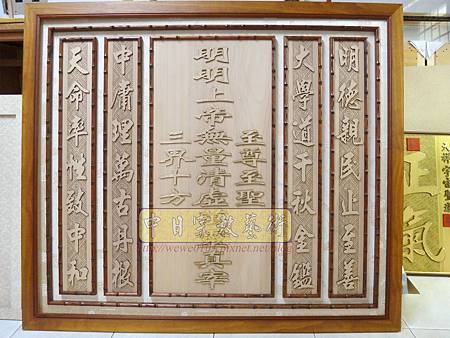 明德親民止至善
大學道千秋金鑑
明明上帝無量清虛
至尊至聖
三界十方
真宰
中庸理萬古丹根
天命率性致中和
中日宗教藝術
正氣